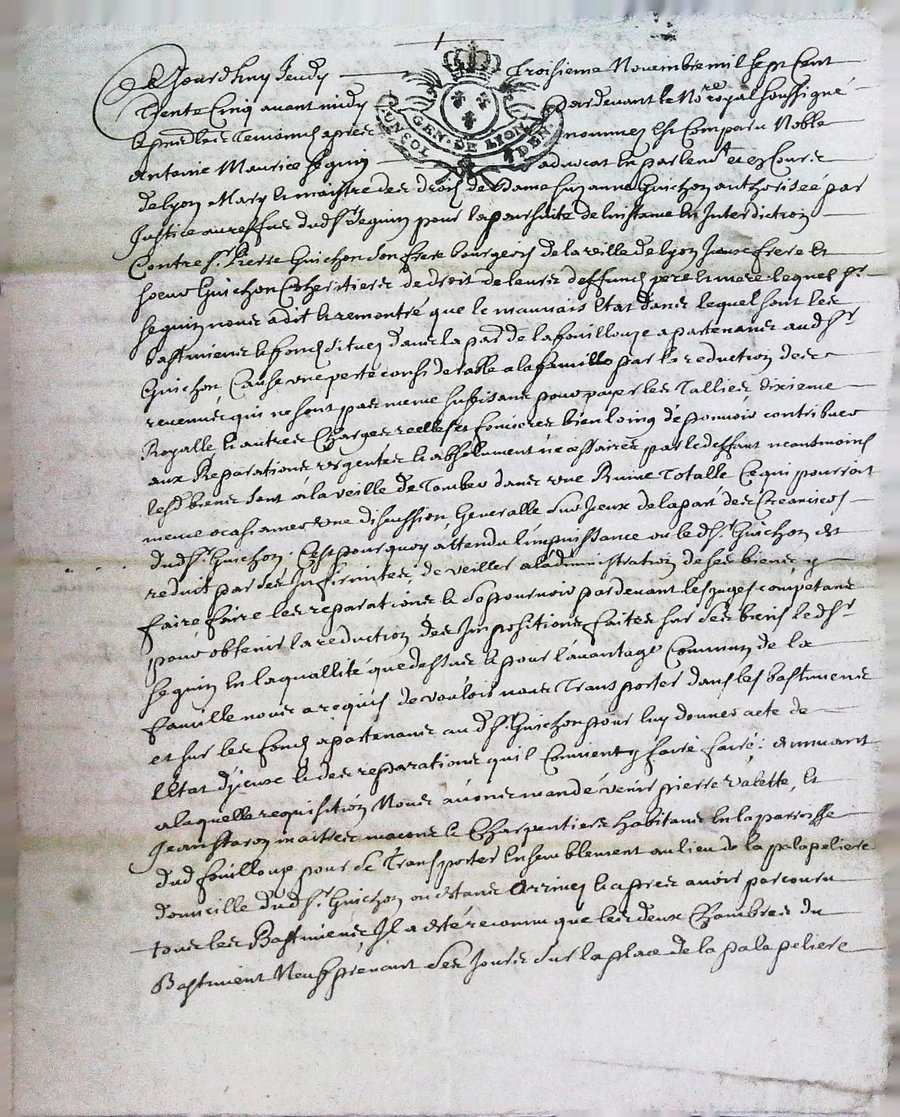 Cejourdhuy Jeudy troisieme Novembre mil sept cent
trente Cinq avant midy pardevant le Nore royal soussigné
GEN. DE LYON
CONSOL DEN.
& presents les temoins apres nommes est Comparu Noble
Antoine Maurice Seguin advocat en parlemt et es Cours
de Lyon Mary & maistre des droits de dame Suzanne Guichon authorisée par
Justice au reffus dudt Sr Seguin pour la poursuite de linstance en Interdiction
Contre Sr Pierre Guichon son frere bourgeois de la ville de Lyon frere et
soeur Guichon Coheritiers de droit de leurs deffuncts pere et mere lequel Sr
Seguin nous a dit & remontré que le mauvais Etat dans lequel sont les
bastiments & fonds situes dans la parr. de la fouillouze apartenans audt Sr
Guichon Cause une perte considerable a la famille par la reduction des
revenus qui ne sont pas meme sufisans pour payer les Tallies dixieme
Royalle & autres Charges reelles et foncieres bien loing de pouvoir contribuer
aux Reparations urgentes & absolument necessaires par le deffaut neantmoins
lesd biens sont a la veille de tomber dans une Ruine Totalle Ce qui pourroit
meme ocasionner une discussion Generalle sur Iceux de la part des Creanciers
dudt Sr Guichon. C'est pourquoy attendu l'impuissance ou ledt Sr Guichon est
reduit par ses Infirmites de veiller a ladministration de ses biens, y
faire faire les reparations & se pourvoir pardevant les Juges competans
pour obtenir la reduction des Impositions faites sur ses biens ledt Sr
Seguin en la quallité que dessus & pour l'avantage Commun de la
famille nous a requis de vouloir nous Transporter dans les bastiments
et sur les fonds apartenans audt Sr Guichon pour luy donner acte de
l'Etat d'Jceux & des reparations qu'il Convient y faire faire: et suivant
a laquelle requisition Nous avons mandé venir pierre Valette, &
Jean maitres macons & Charpentiers habitans en la parroisse
dud fouillouze pour se Transporter Ensemblement au lieu de la palapeliere
domicille dudt Sr Guichon ou estans Arrives & apres avoir parcouru
tous les Bastiments Il a esté reconnu que les deux Chambres du
Bastiment Neuf prenant des Jours sur la place de la palapeliere